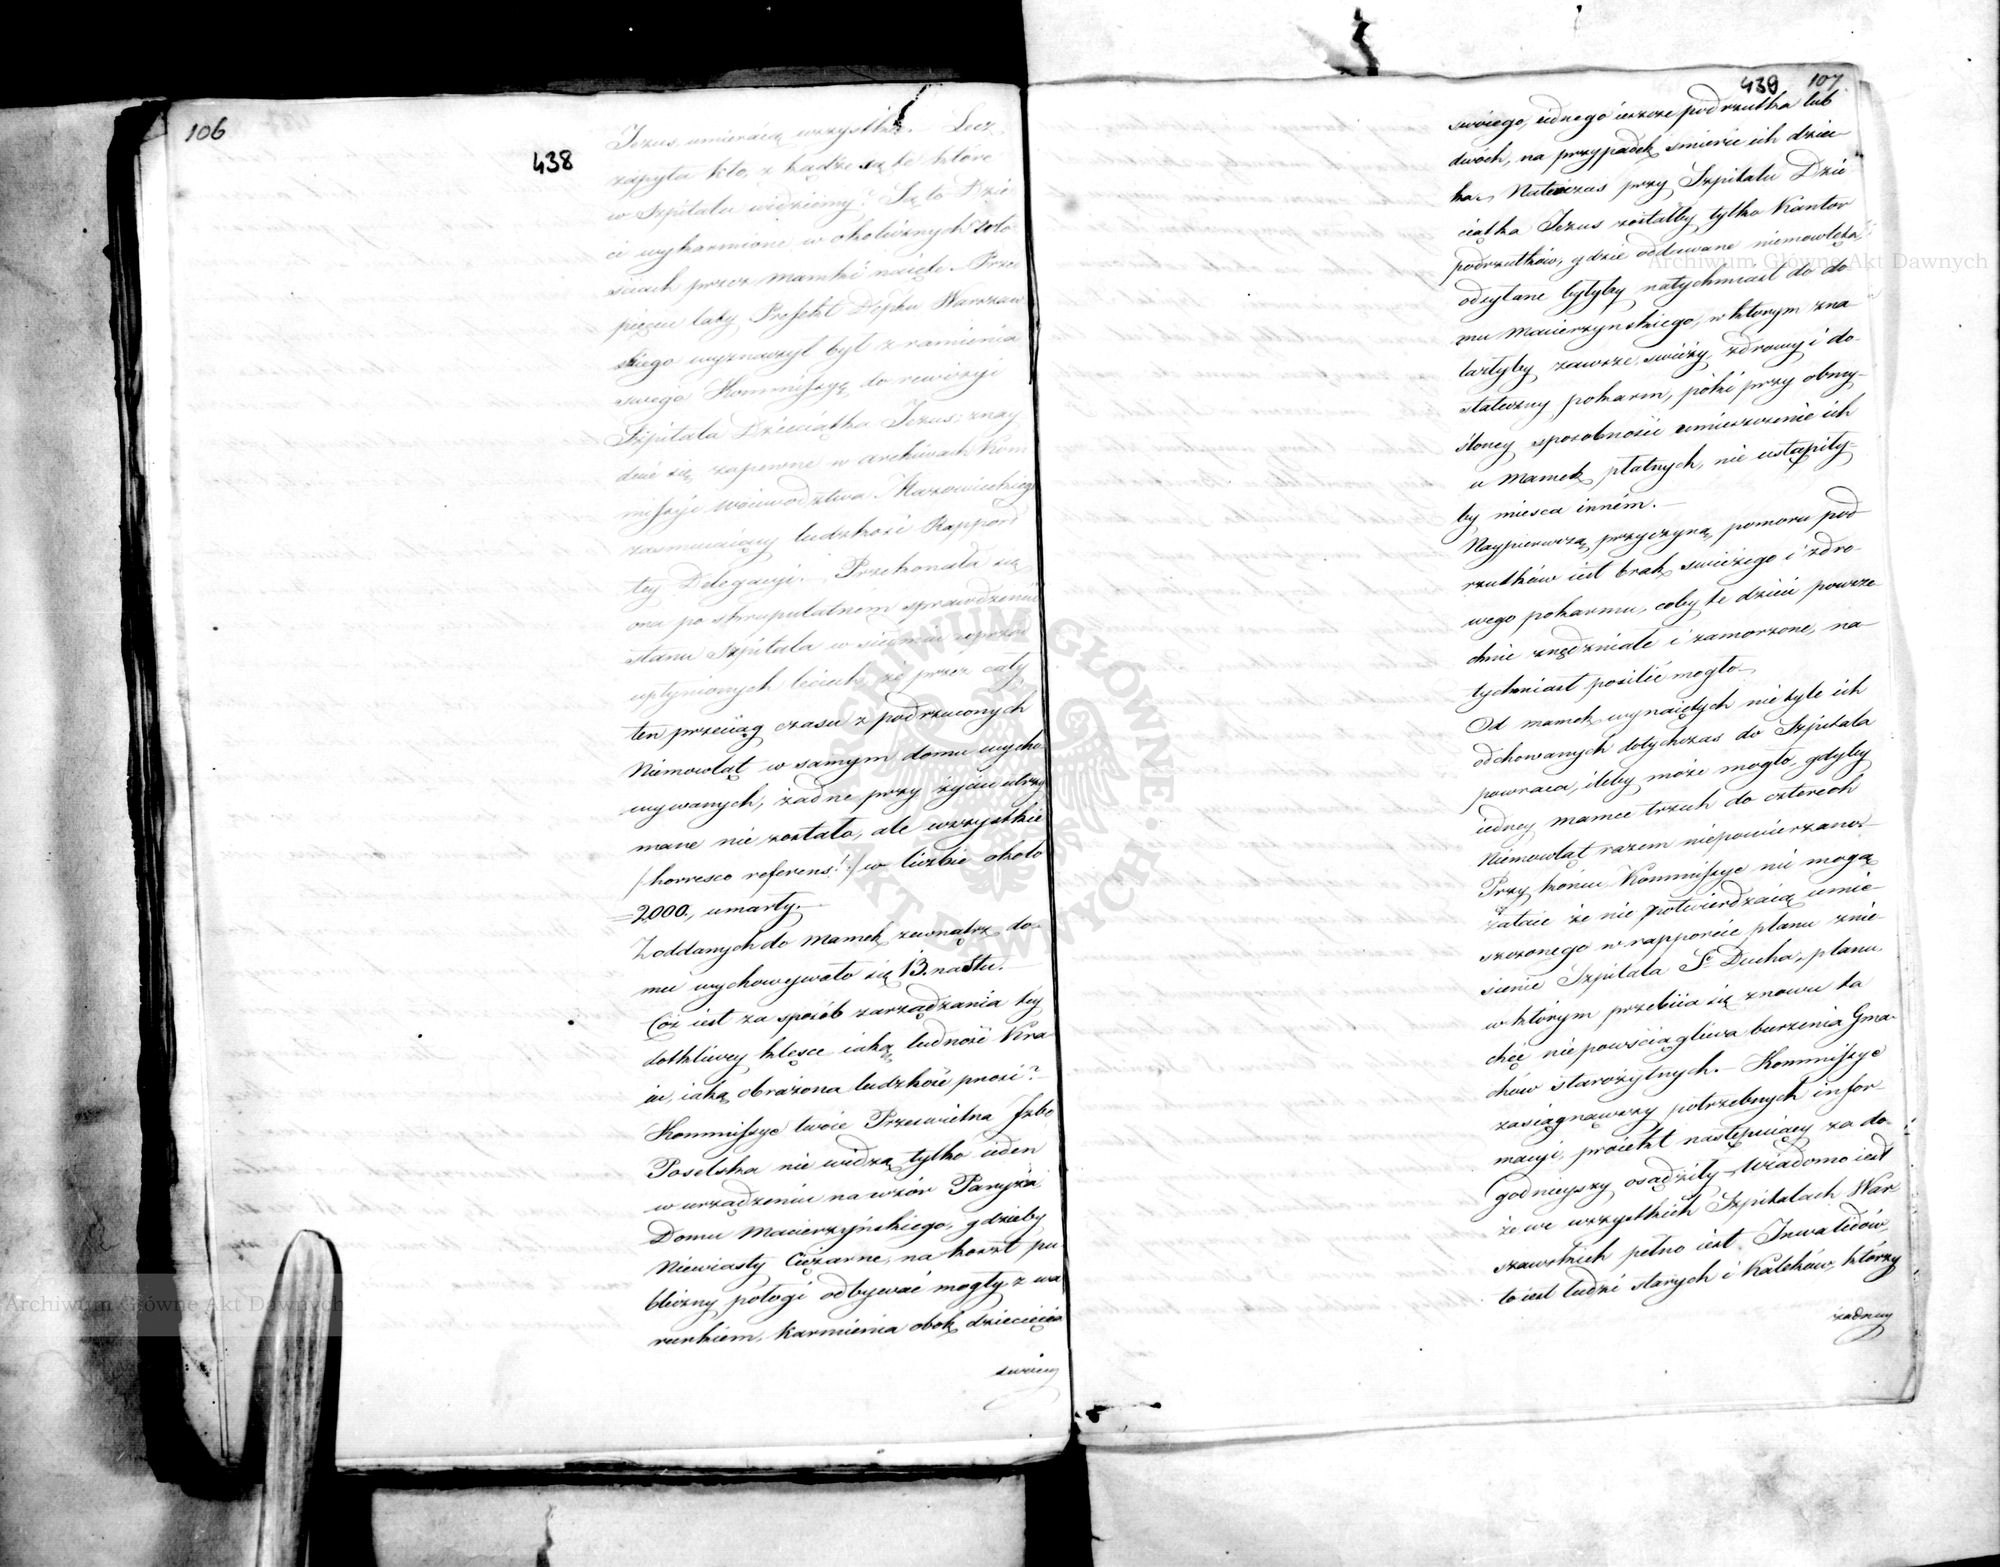 106
438
Jezus umieraią wszystkie. Lecz
zapyta kto, z kądże są te które
w Szpitalu widziemy? Są to Dzie
ci wykarmione w okolicznych Wło
ściach przez mamki naięte. Przed
pięciu laty Prefekt Deptu Warszaw
skiego wyznaczył był z ramienia
swego Kommissyę do rewizyi
Szpitala Dzieciątka Jezus; znay
dzie się zapewne w archiwach Kom
missyi Woiewództwa Mazowieckiego
zasmucaiący ludzkość Rapport
tey Delegacyi. Przekonała się
ona po skrupulatnem sprawdzeniu
stanu Szpitala w siedmiu uprzed
upłynionych leciech, że przez cały
ten przeciąg czasu z podrzuconych
Niemowląt w samym domu wycho
wywanych, żadne przy życiu utrzy
mane nie zostało, ale wszystkie
/horresco referens!/ w liczbie około
=2000, umarły.
Z oddanych do Mamek zewnątrz do
mu wychowywało się 13. na Stu.
Coż iest za sposób zarządzania tey
dotkliwey klęsce iaką ludność Kra
iu, iaką obrażona ludzkość ponosi?
Kommissye twoie Prześwietna Izbo
Poselska nie widzą tylko ieden
w urządzeniu na wzór Paryża
Domu Macierzyńskiego, gdzieby
Niewiasty Ciężarne, na koszt pu
bliczny, połogi odbywać mogły z wa
runkiem, karmienia obok dziecięcia
swoiego
439 107
swoiego, iednego ieszcze podrzutka lub
dwóch, na przypadek śmierci ich dziec
ka. Natenczas przy Szpitalu Dzie
ciątka Jezus zostałby tylko Kantor
podrzutków, gdzie oddawane niemowlęta,
odsyłane byłyby natychmiast do do
mu Macierzyńskiego, w którym zna
lazłyby zawsze świeży, zdrowy i do
stateczny pokarm, póki przy obmy
śloney sposobności umieszczenie ich
u Mamek płatnych, nie ustąpiły
by miesca inném.
Naypierwszą przyczyną, pomoru pod
rzutków iest brak świeżego i zdro
wego pokarmu, coby te dzieci powsze
chnie znędzniałe i zamorzone, na
tychmiast posilić mogło.
Od mamek wynaiętych nie tyle ich
odchowanych dotychczas do Szpitala
powraca, ileby może mogło, gdyby
iedney mamce trzech do czterech
Niemowląt razem niepowierzano.
Przy końcu Kommissye nie mogą
zataić że nie potwierdzaią umie
szczonego w rapporcie planu znie
sienie Szpitala Sgo Ducha, planu
w którym przebiia się znowu ta
chęć niepowściągliwa burzenia Gma
chów starożytnych. Kommissye
zasiągnąwszy potrzebnych infor
macyi, proiekt następuiący za do
godnieyszy osądziły. Wiadomo iest
że we wszystkich Szpitalach War
szawskich pełno iest Inwalidów
to iest ludzi starych i Kaleków, którzy
żadney